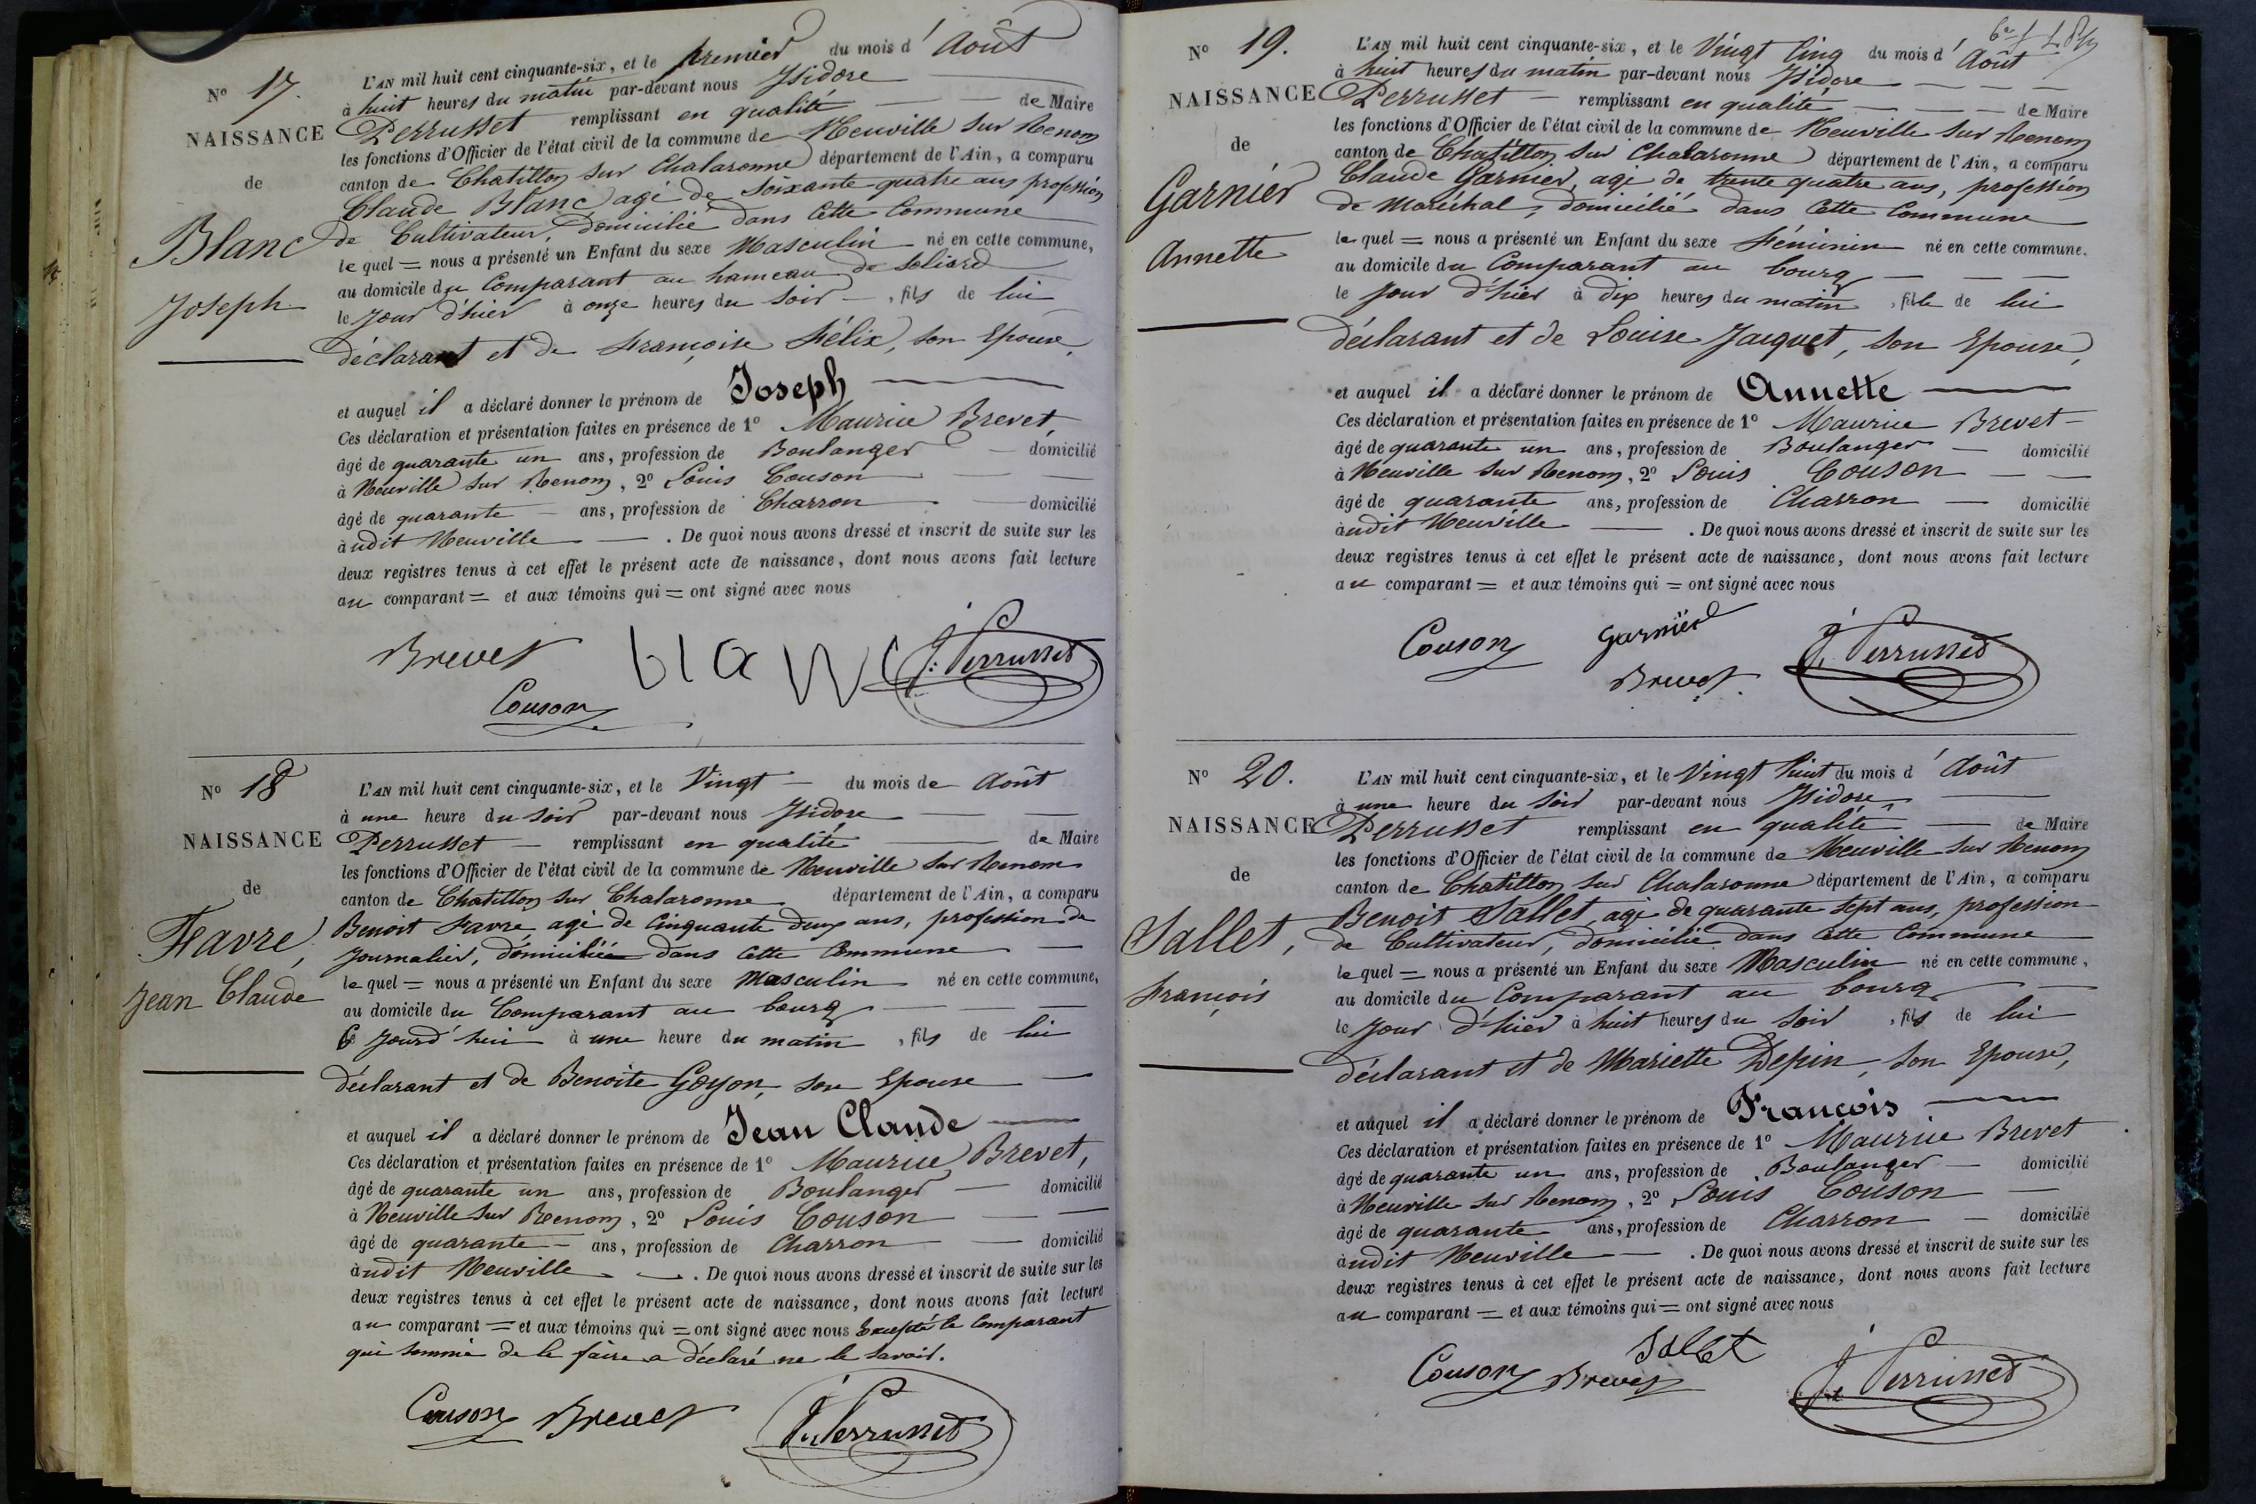 N° 17.
NAISSANCE
de
Blanc
Joseph
L'AN mil huit cent cinquante-six, et le premier du mois d' Août
à huit heures du matin par-devant nous Isidore
Perrusset remplissant en qualité de Maire
les fonctions d'Officier de l'état civil de la commune de Neuville sur Renom
canton de Chatillon sur Chalaronne département de l'Ain, a comparu
Claude Blanc, agé de soixante quatre ans, profession
de Cultivateur, domicilié dans cette Commune
le quel = nous a présenté un Enfant du sexe Masculin né en cette commune,
au domicile du Comparant au hameau de Soliard
le jour d'hier à onze heures du soir, fils de lui
déclarant et de Françoise Félix, son Epouse,
et auquel il a déclaré donner le prénom de Joseph
Ces déclaration et présentation faites en présence de 1° Maurice Brevet,
âgé de quarante un ans, profession de Boulanger domicilié
à Neuville sur Renom, 2° Louis Couson
âgé de quarante ans, profession de Charron domicilié
à udit Neuville. De quoi nous avons dressé et inscrit de suite sur les
deux registres tenus à cet effet le présent acte de naissance, dont nous avons fait lecture
au comparant = et aux témoins qui = ont signé avec nous
Brevet blanc J. Perrusset
Couson
N° 18
NAISSANCE
de
Favre,
Jean Claude
L'AN mil huit cent cinquante-six, et le Vingt du mois de Août
à une heure du soir par-devant nous Isidore
Perrusset remplissant en qualité de Maire
les fonctions d'Officier de l'état civil de la commune de Neuville sur Renom
canton de Chatillon sur Chalaronne département de l'Ain, a comparu
Benoit Favre agé de Cinquante deux ans, profession de
journalier, domiciliée dans cette Commune
le quel = nous a présenté un Enfant du sexe Masculin né en cette commune,
au domicile du Comparant au bourg
Ce jourd'hui à une heure du matin, fils de lui
déclarant et de Benoite Goyon, son Epouse
et auquel il a déclaré donner le prénom de Jean Claude
Ces déclaration et présentation faites en présence de 1° Maurice Brevet,
âgé de quarante un ans, profession de Boulanger domicilié
à Neuville sur Renom, 2° Louis Couson
âgé de quarante ans, profession de Charron domicilié
à udit Neuville. De quoi nous avons dressé et inscrit de suite sur les
deux registres tenus à cet effet le présent acte de naissance, dont nous avons fait lecture
au comparant = et aux témoins qui = ont signé avec nous Excepté le Comparant
qui sommé de le faire a déclaré ne le savoir.
Couson Brevet J. Perrusset
N° 19.
NAISSANCE
de
Garnier
Annette
L'AN mil huit cent cinquante-six, et le Vingt Cinq du mois d' Août
à huit heures du matin par-devant nous Isidore
Perrusset remplissant en qualité de Maire
les fonctions d'Officier de l'état civil de la commune de Neuville sur Renom
canton de Chatillon sur Chalaronne département de l'Ain, a comparu
Claude Garnier, agé de trente quatre ans, profession
de Maréchal, domicilié dans cette Commune
le quel = nous a présenté un Enfant du sexe Féminin né en cette commune.
au domicile du Comparant au bourg
le jour d'hier à dix heures du matin, fille de lui
déclarant et de Louise Jacquet, son Epouse,
et auquel il a déclaré donner le prénom de Annette
Ces déclaration et présentation faites en présence de 1° Maurice Brevet
âgé de quarante un ans, profession de Boulanger domicilié
à Neuville sur Renom, 2° Louis Couson
âgé de quarante ans, profession de Charron domicilié
à udit Neuville. De quoi nous avons dressé et inscrit de suite sur les
deux registres tenus à cet effet le présent acte de naissance, dont nous avons fait lecture
au comparant = et aux témoins qui = ont signé avec nous
Couson Garnier J. Perrusset
Brevet
N° 20.
NAISSANCE
de
Sallet,
François
L'AN mil huit cent cinquante-six, et le Vingt huit du mois d' Août
à une heure du soir par-devant nous Isidore,
Perrusset remplissant en qualité de Maire
les fonctions d'Officier de l'état civil de la commune de Neuville sur Renom
canton de Chatillon sur Chalaronne département de l'Ain, a comparu
Benoit Sallet, agé de quarante sept ans, profession
de Cultivateur, domicilié dans cette Commune
le quel = nous a présenté un Enfant du sexe Masculin né en cette commune,
au domicile du Comparant au bourg
le jour d'hier à huit heures du soir, fils de lui
déclarant et de Mariette Depin, son Epouse,
et auquel il a déclaré donner le prénom de François
Ces déclaration et présentation faites en présence de 1° Maurice Brevet
âgé de quarante un ans, profession de Boulanger domicilié
à Neuville sur Renom, 2° Louis Couson
âgé de quarante ans, profession de Charron domicilié
à udit Neuville. De quoi nous avons dressé et inscrit de suite sur les
deux registres tenus à cet effet le présent acte de naissance, dont nous avons fait lecture
au comparant = et aux témoins qui = ont signé avec nous
Couson Brevet Sallet J. Perrusset